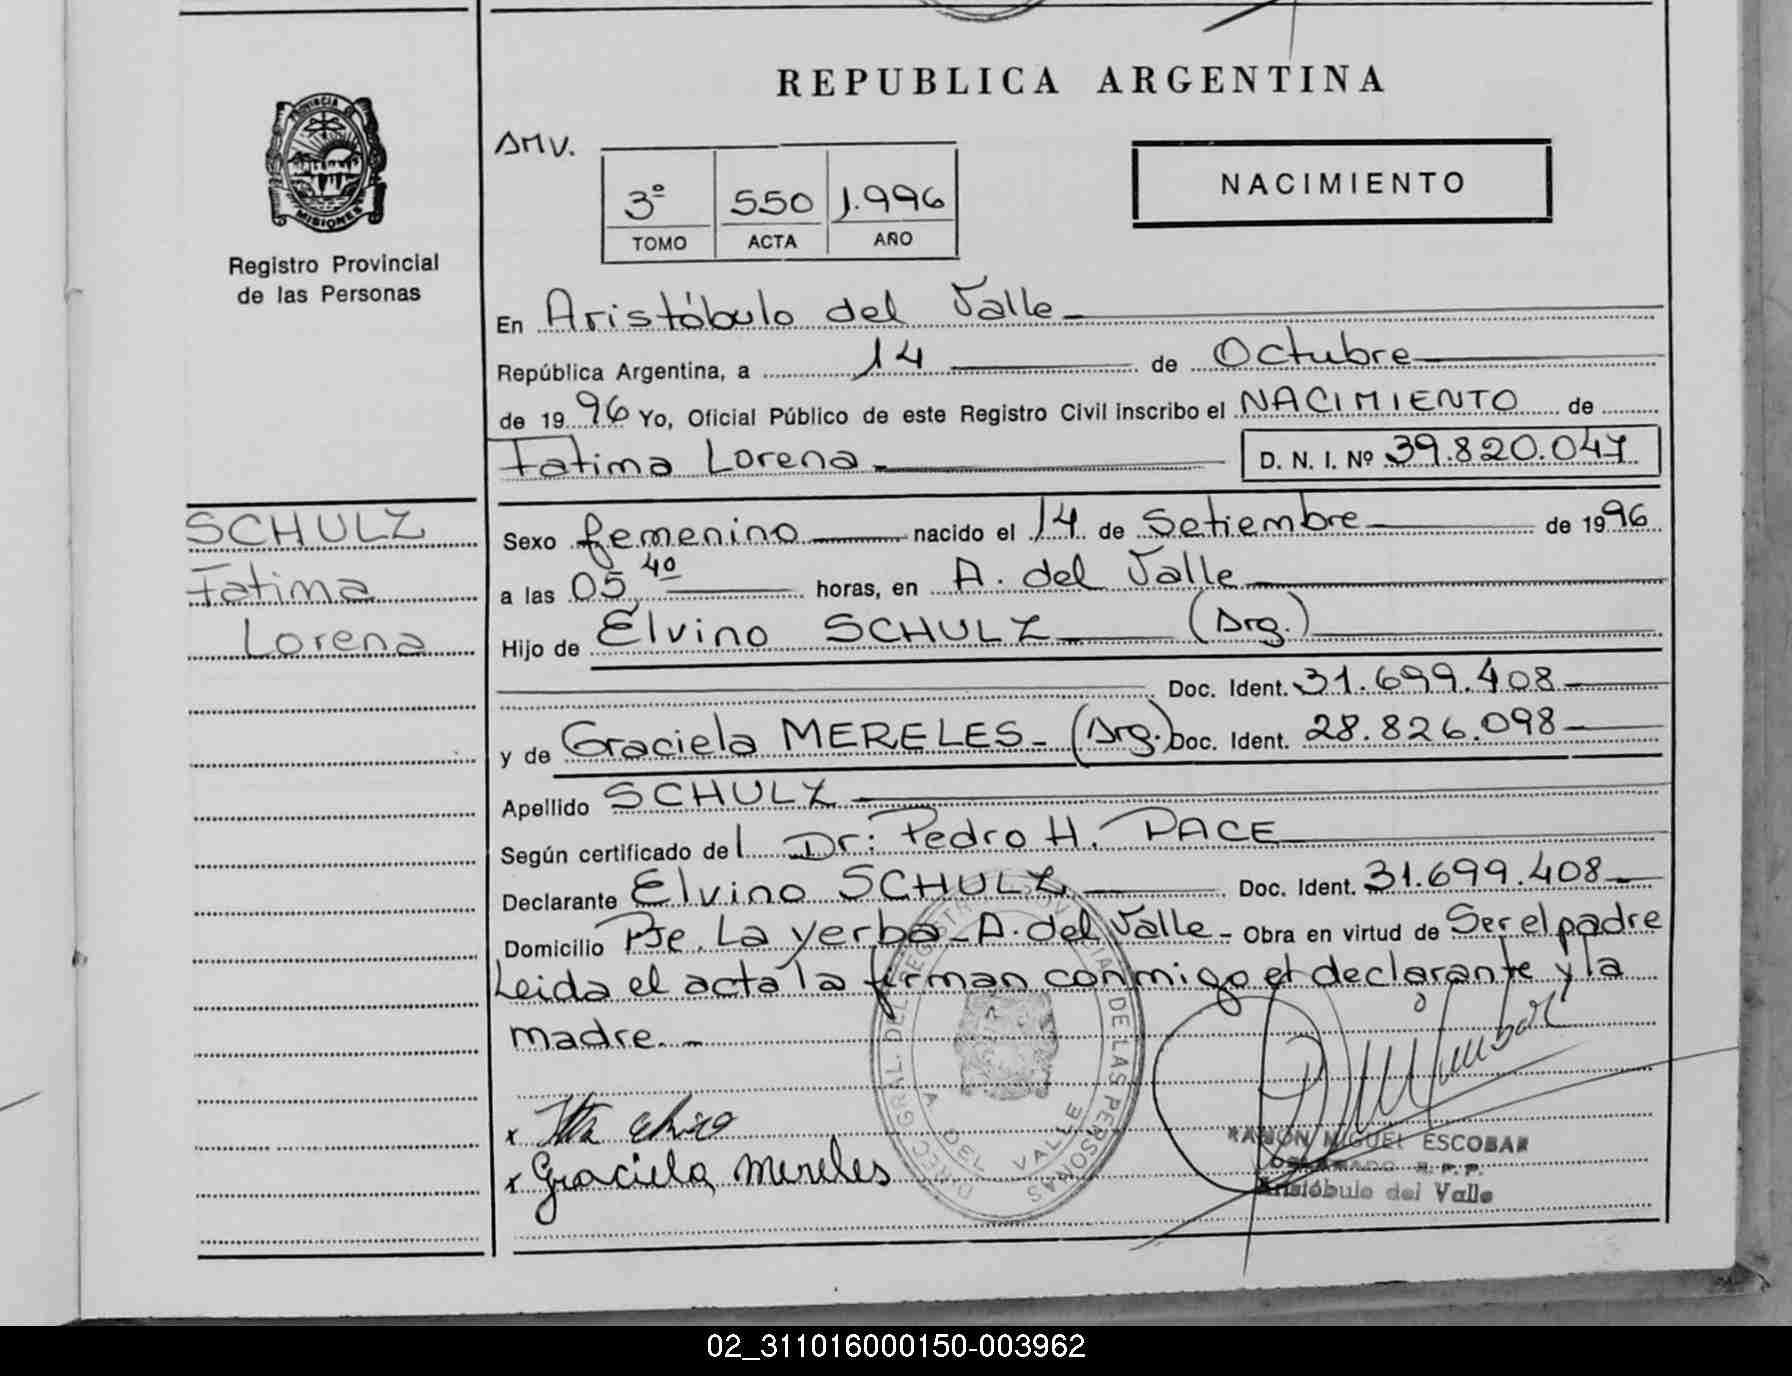 REPUBLICA ARGENTINA
PROVINCIA DE
MISIONES
Registro Provincial
de las Personas
AMV.
3º 550 1.996
TOMO ACTA AÑO
NACIMIENTO
En Aristóbulo del Valle
República Argentina, a 14 de Octubre
de 1996 Yo, Oficial Público de este Registro Civil inscribo el NACIMIENTO de
Fatima Lorena D. N. I. Nº 39.820.047
SCHULZ
Fatima
Lorena
Sexo femenino nacido el 14 de Setiembre de 1996
a las 05,40 horas, en A. del Valle
Hijo de Elvino SCHULZ (Arg.)
Doc. Ident. 31.699.408
y de Graciela MERELES (Arg.) Doc. Ident. 28.826.098
Apellido SCHULZ
Según certificado del Dr: Pedro H. PACE
Declarante Elvino SCHULZ Doc. Ident. 31.699.408
Domicilio Pje. La yerba - A. del Valle - Obra en virtud de Ser el padre
Leida el acta la firman conmigo el declarante y la
madre. -
x
x Graciela mereles
DIREC. GRAL. DEL REGISTRO DE LAS PERSONAS
A. DEL VALLE
RAMON MIGUEL ESCOBAR
R. P. P.
Aristóbulo del Valle
02_311016000150-003962